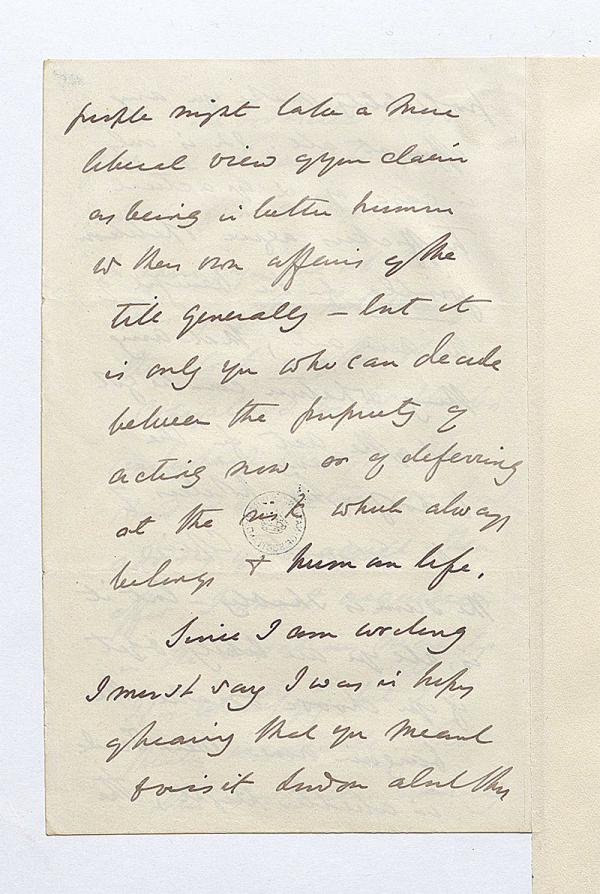 people might take a more
liberal view of your claim
as being in better humour
w their own affairs of the
title generally – but it
is only you who can decide
between the propriety of
acting now or of deferring
at the risk which always
belongs to human life.
Since I am writing
I must say I was in hopes
of hearing that you meant
to visit London about this